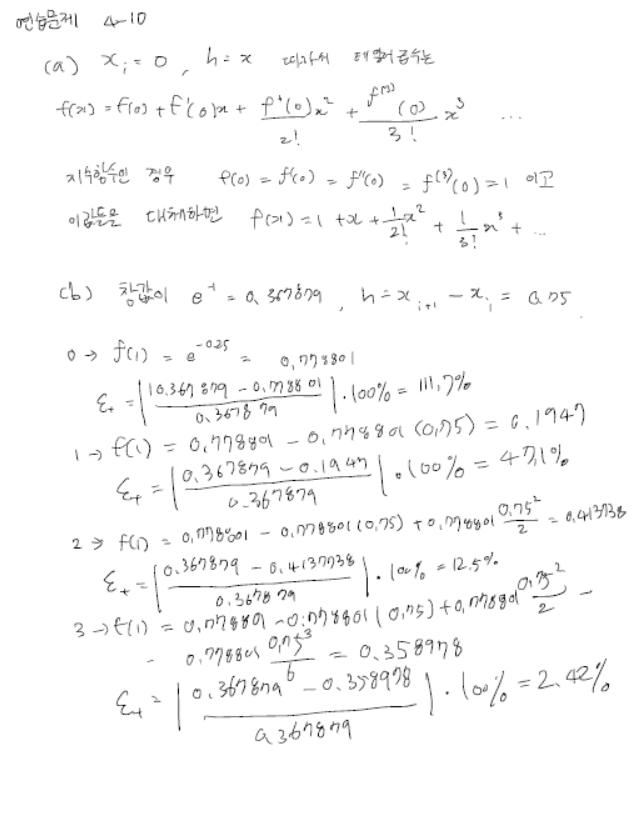 연습문제 4-10
(a) x_i = 0 , h = x 따라서 테일러급수는
f(x) = f(0) + f'(0)x + f''(0)x²/2! + f⁽³⁾(0)/3! x³ ...
지수함수인 경우 f(0) = f'(0) = f''(0) = f⁽³⁾(0) = 1 이고
이값들을 대체하면 f(x) = 1 + x + 1/2! x² + 1/3! x³ + ...
(b) 참값이 e⁻¹ = 0.367879 , h = x_{i+1} - x_i = 0.75
0 → f(1) = e^{-0.25} = 0.778801
ε_t = |(0.367879 - 0.778801)/0.367879| · 100% = 111.7%
1 → f(1) = 0.778801 - 0.778801 (0.75) = 0.1947
ε_t = |(0.367879 - 0.1947)/0.367879| · 100% = 47.1%
2 → f(1) = 0.778801 - 0.778801 (0.75) + 0.778801 0.75²/2 = 0.413738
ε_t = |(0.367879 - 0.4137738)/0.367879| · 100% = 12.5%
3 → f(1) = 0.778801 - 0.778801 (0.75) + 0.778801 0.75²/2 -
- 0.778801 0.75³/6 = 0.358978
ε_t = |(0.367879 - 0.358978)/0.367879| · 100% = 2.42%